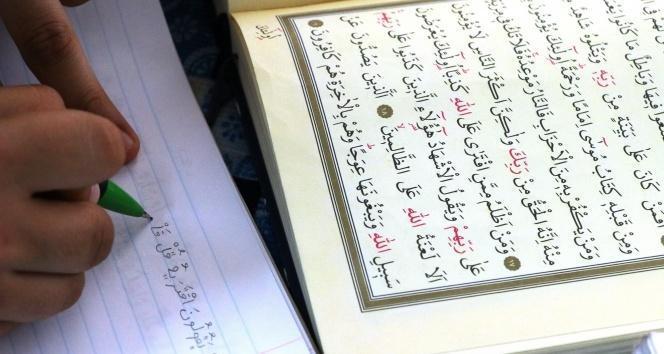 فيها وباطل ما كانوا
أَفَمَنْ كَانَ عَلَى بَيِّنَةٍ مِنْ رَبِّهِ وَيَتْلُوهُ شَاهِدٌ
وَمِنْ قَبْلِهِ كِتَابُ مُوسَى إِمَامًا وَرَحْمَةً أُولَٰئِكَ يُؤْمِنُونَ
وَمَنْ يَكْفُرْ بِهِ مِنَ الْأَحْزَابِ فَالنَّارُ مَوْعِدُهُ فَلَا تَكُ فِي
مِنْهُ إِنَّهُ الْحَقُّ مِنْ رَبِّكَ وَلَٰكِنَّ أَكْثَرَ النَّاسِ لَا يُؤْمِنُونَ
١٧ وَمَنْ أَظْلَمُ مِمَّنِ افْتَرَى عَلَى اللَّهِ كَذِبًا أُولَٰئِكَ يُعْرَضُونَ
عَلَى رَبِّهِمْ وَيَقُولُ الْأَشْهَادُ هَٰؤُلَاءِ الَّذِينَ كَذَبُوا عَلَى رَبِّهِمْ
أَلَا لَعْنَةُ اللَّهِ عَلَى الظَّالِمِينَ ١٨ الَّذِينَ يَصُدُّونَ عَنْ
سَبِيلِ اللَّهِ وَيَبْغُونَهَا عِوَجًا وَهُمْ بِالْآخِرَةِ هُمْ كَافِرُونَ ١٩
يقولون افتريه قل فأ